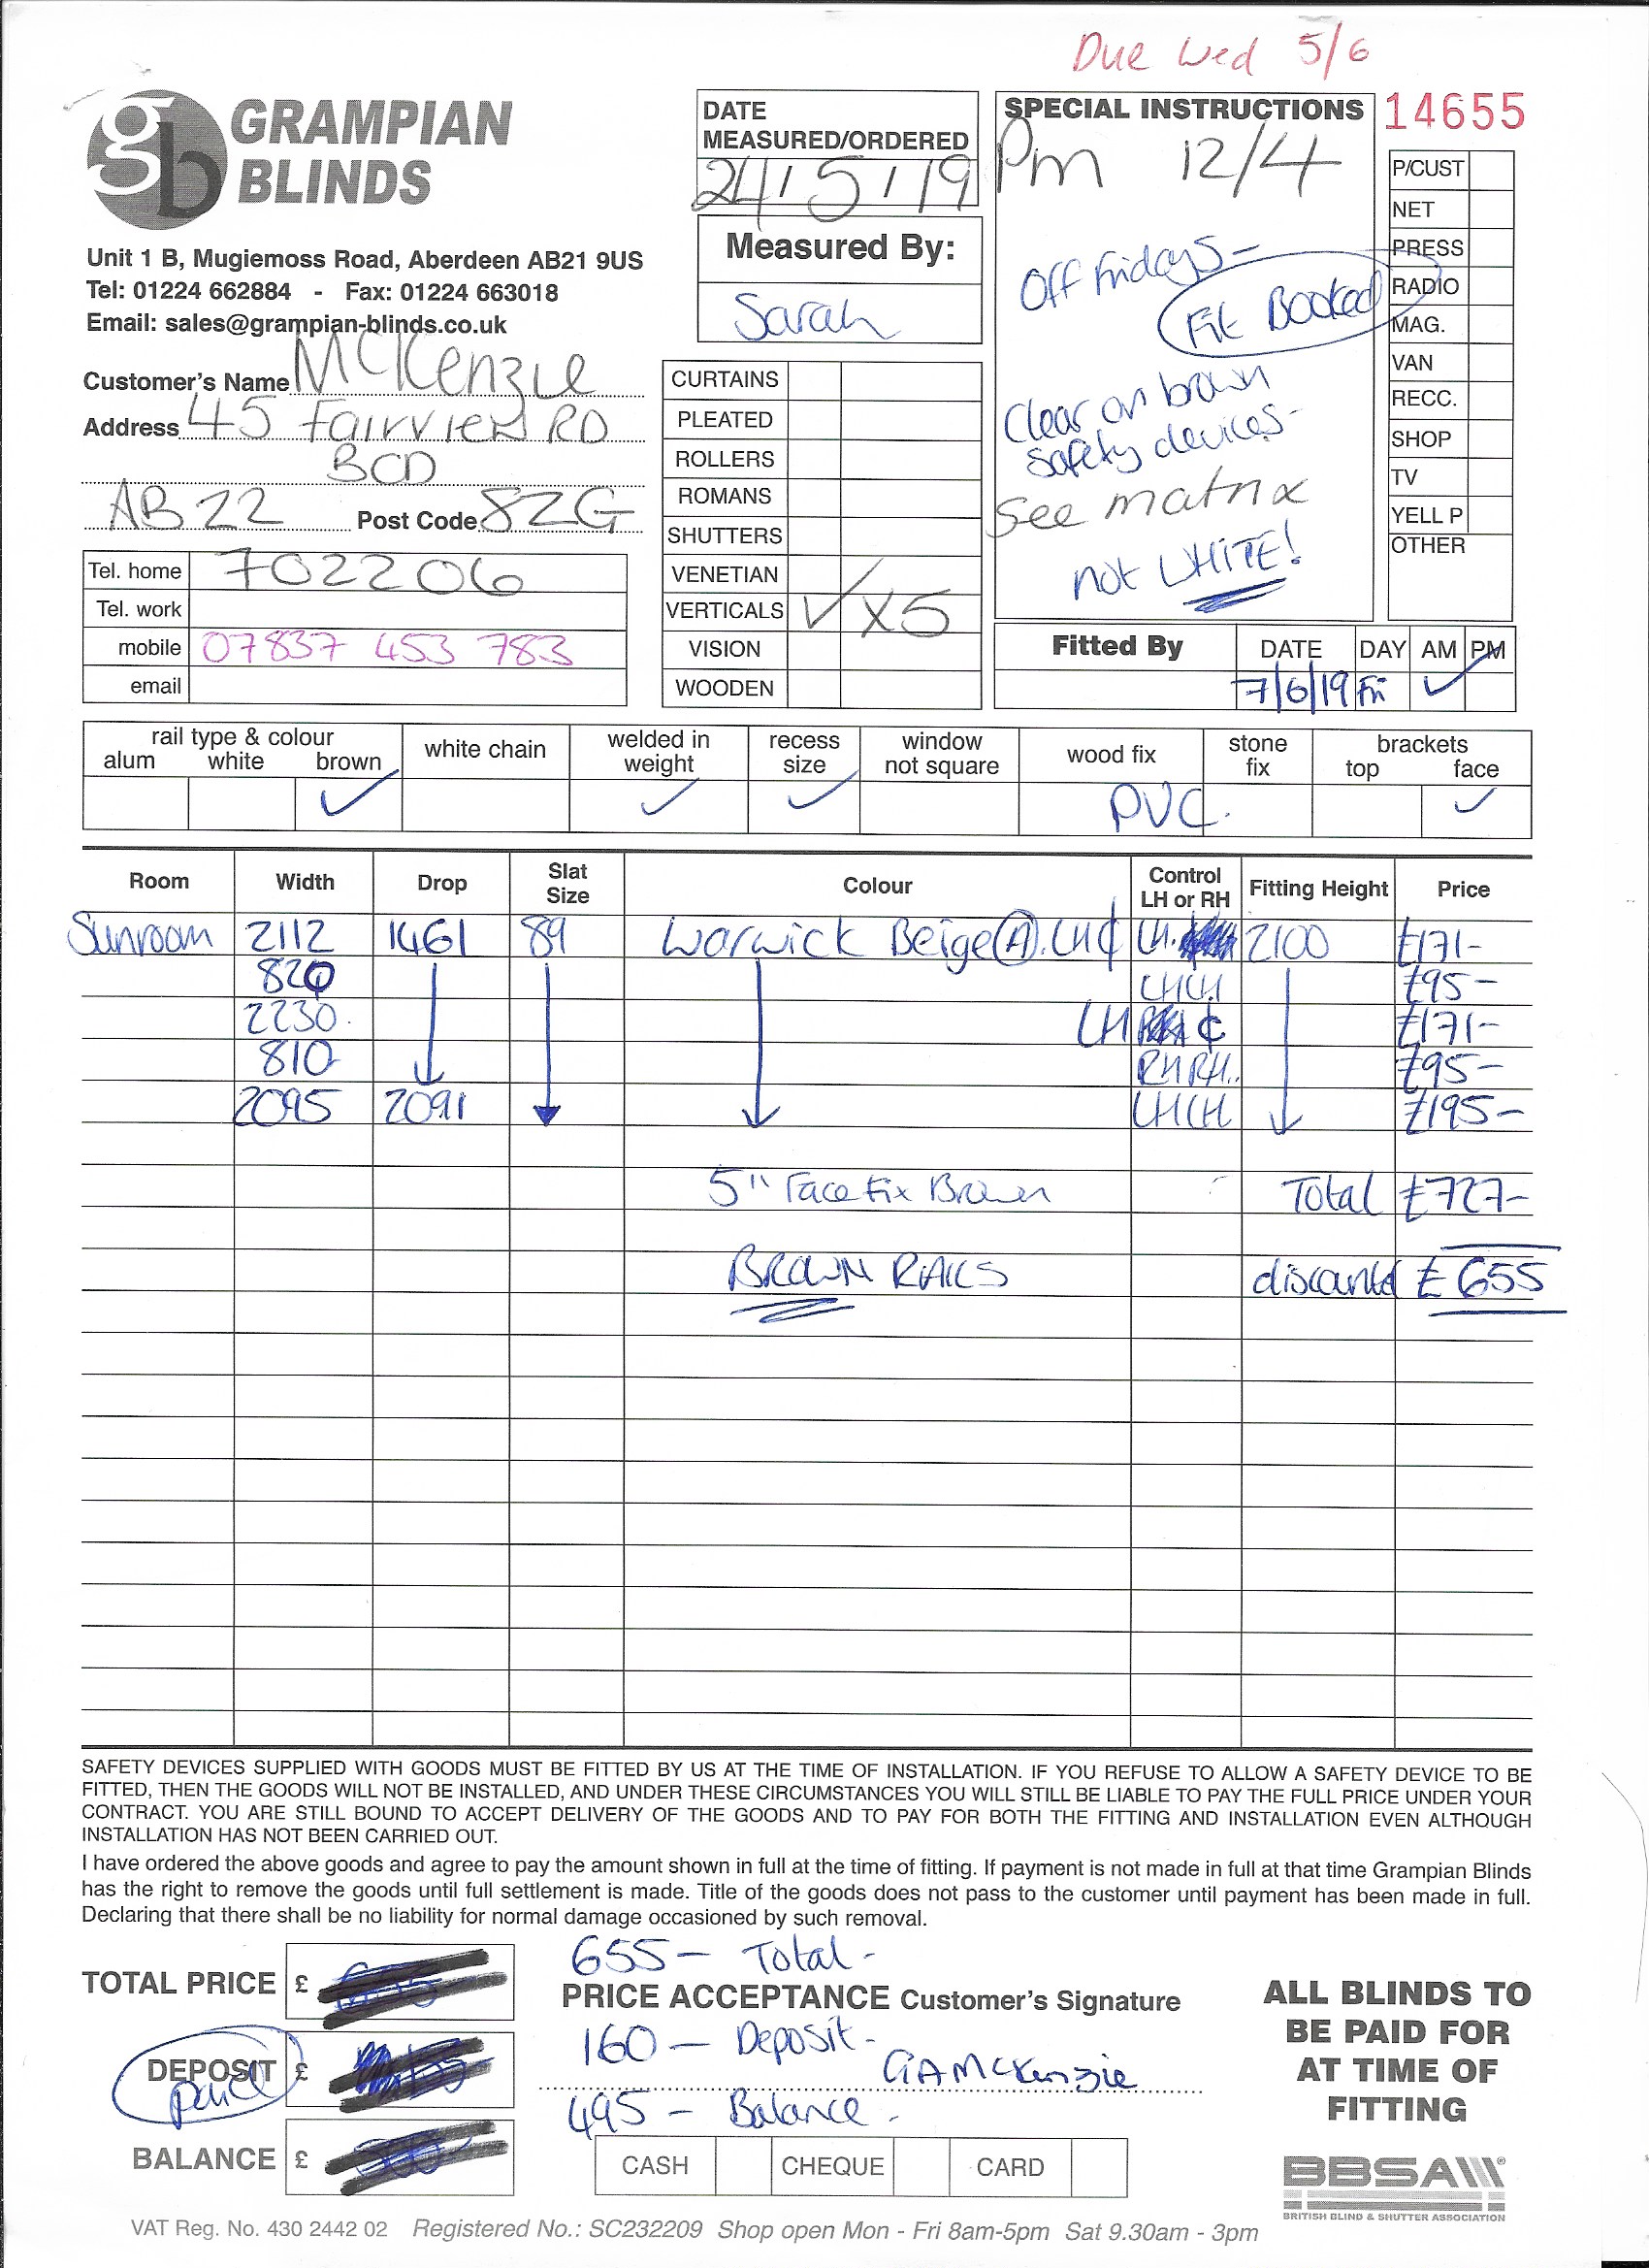 Due Wed 5/6
GRAMPIAN
BLINDS
Unit 1 B, Mugiemoss Road, Aberdeen AB21 9US
Tel: 01224 662884 - Fax: 01224 663018
Email: sales@grampian-blinds.co.uk
Customer's Name McKenzie
Address 45 Fairview RD
BCD
AB22 Post Code 8ZG
Tel. home 702206
Tel. work
mobile 07837 453 783
email
DATE
MEASURED/ORDERED
24/5/19
Measured By:
Sarah
CURTAINS
PLEATED
ROLLERS
ROMANS
SHUTTERS
VENETIAN
VERTICALS ✓ x5
VISION
WOODEN
SPECIAL INSTRUCTIONS
Pm 12/4
Off Fridays -
Fit Booked
Clear on brown
safety devices -
See matrix
not WHITE!
14655
P/CUST
NET
PRESS
RADIO
MAG.
VAN
RECC.
SHOP
TV
YELL P
OTHER
Fitted By DATE DAY AM PM
7/6/19 Fri ✓
rail type & colour white chain welded in recess window wood fix stone brackets
alum white brown weight size not square fix top face
✓ ✓ ✓ PVC. ✓
Room Width Drop Slat Size Colour Control LH or RH Fitting Height Price
Sunroom 2112 1461 89 Warwick Beige (A). LH¢ LH. 2100 £171-
820 LHLH £95-
2230. LH ¢ £171-
810 RHRH.. £95-
2095 2091 LHLH £195-
5" Face Fix Brown Total £727-
BROWN RAILS discounted £655
SAFETY DEVICES SUPPLIED WITH GOODS MUST BE FITTED BY US AT THE TIME OF INSTALLATION. IF YOU REFUSE TO ALLOW A SAFETY DEVICE TO BE
FITTED, THEN THE GOODS WILL NOT BE INSTALLED, AND UNDER THESE CIRCUMSTANCES YOU WILL STILL BE LIABLE TO PAY THE FULL PRICE UNDER YOUR
CONTRACT. YOU ARE STILL BOUND TO ACCEPT DELIVERY OF THE GOODS AND TO PAY FOR BOTH THE FITTING AND INSTALLATION EVEN ALTHOUGH
INSTALLATION HAS NOT BEEN CARRIED OUT.
I have ordered the above goods and agree to pay the amount shown in full at the time of fitting. If payment is not made in full at that time Grampian Blinds
has the right to remove the goods until full settlement is made. Title of the goods does not pass to the customer until payment has been made in full.
Declaring that there shall be no liability for normal damage occasioned by such removal.
655- Total -
TOTAL PRICE £
PRICE ACCEPTANCE Customer's Signature
160 - Deposit -
DEPOSIT £
paid
GA McKenzie
495 - Balance -
BALANCE £
CASH CHEQUE CARD
ALL BLINDS TO
BE PAID FOR
AT TIME OF
FITTING
BBSA
BRITISH BLIND & SHUTTER ASSOCIATION
VAT Reg. No. 430 2442 02 Registered No.: SC232209 Shop open Mon - Fri 8am-5pm Sat 9.30am - 3pm